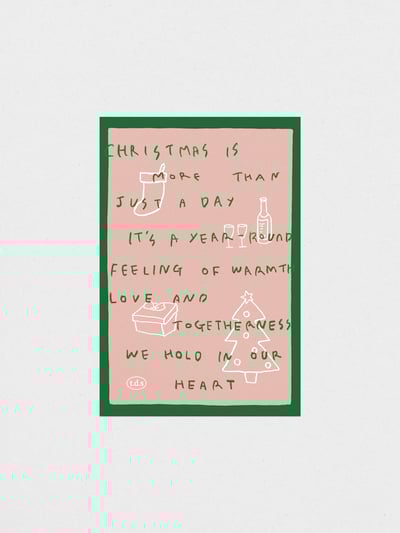 CHRISTMAS IS
MORE THAN
JUST A DAY
IT'S A YEAR-ROUND
FEELING OF WARMTH
LOVE AND
TOGETHERNESS
WE HOLD IN OUR
HEART
t.d.s